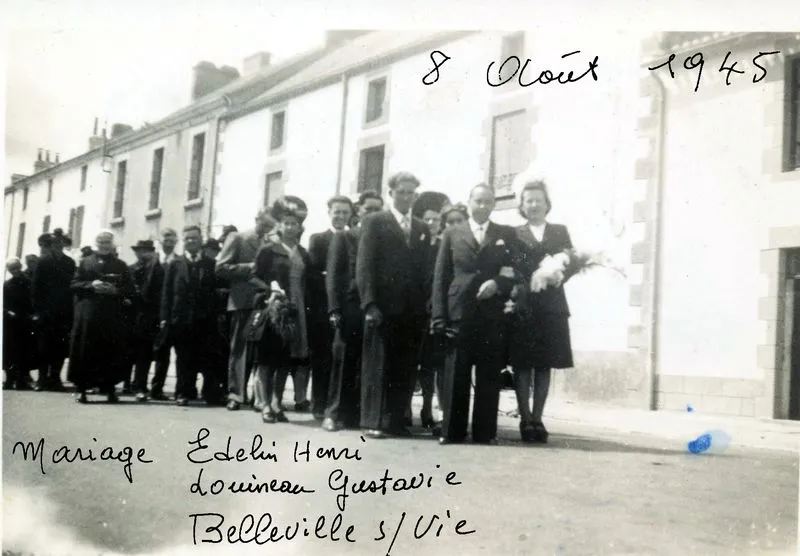 8 Août 1945
Mariage Edelin Henri
Louineau Gustavie
Belleville s/Vie